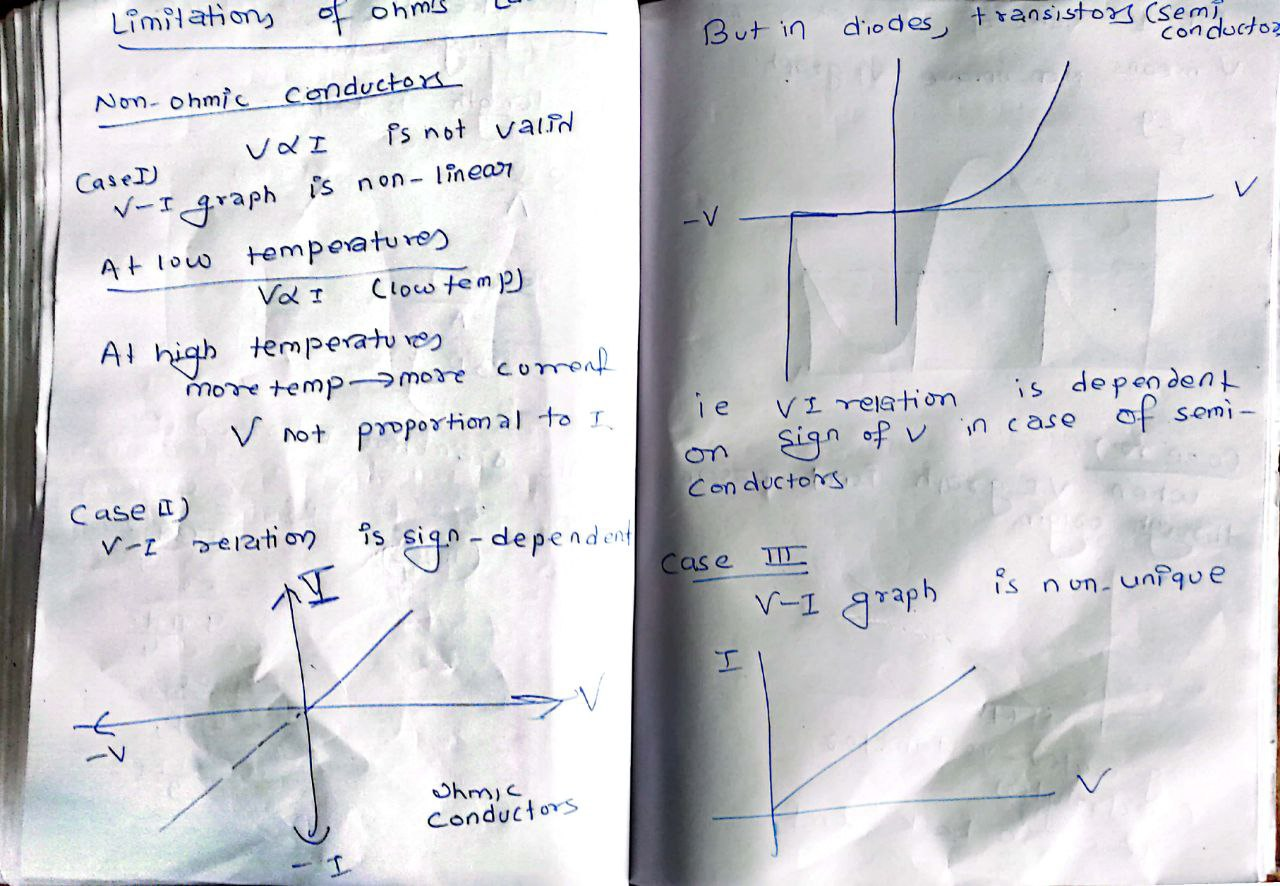 Limitations of ohm's
Non-ohmic conductors
V∝I is not valid
Case I)
V-I graph is non-linear
At low temperatures
V∝I (low temp)
At high temperatures
more temp→more current
V not proportional to I
Case II)
V-I relation is sign-dependent
I
V
-V
ohmic
conductors
-I
But in diodes, transistors (semi
conductor
-V
V
ie VI relation is dependent
on sign of V in case of semi-
conductors
Case III
V-I graph is non-unique
I
V